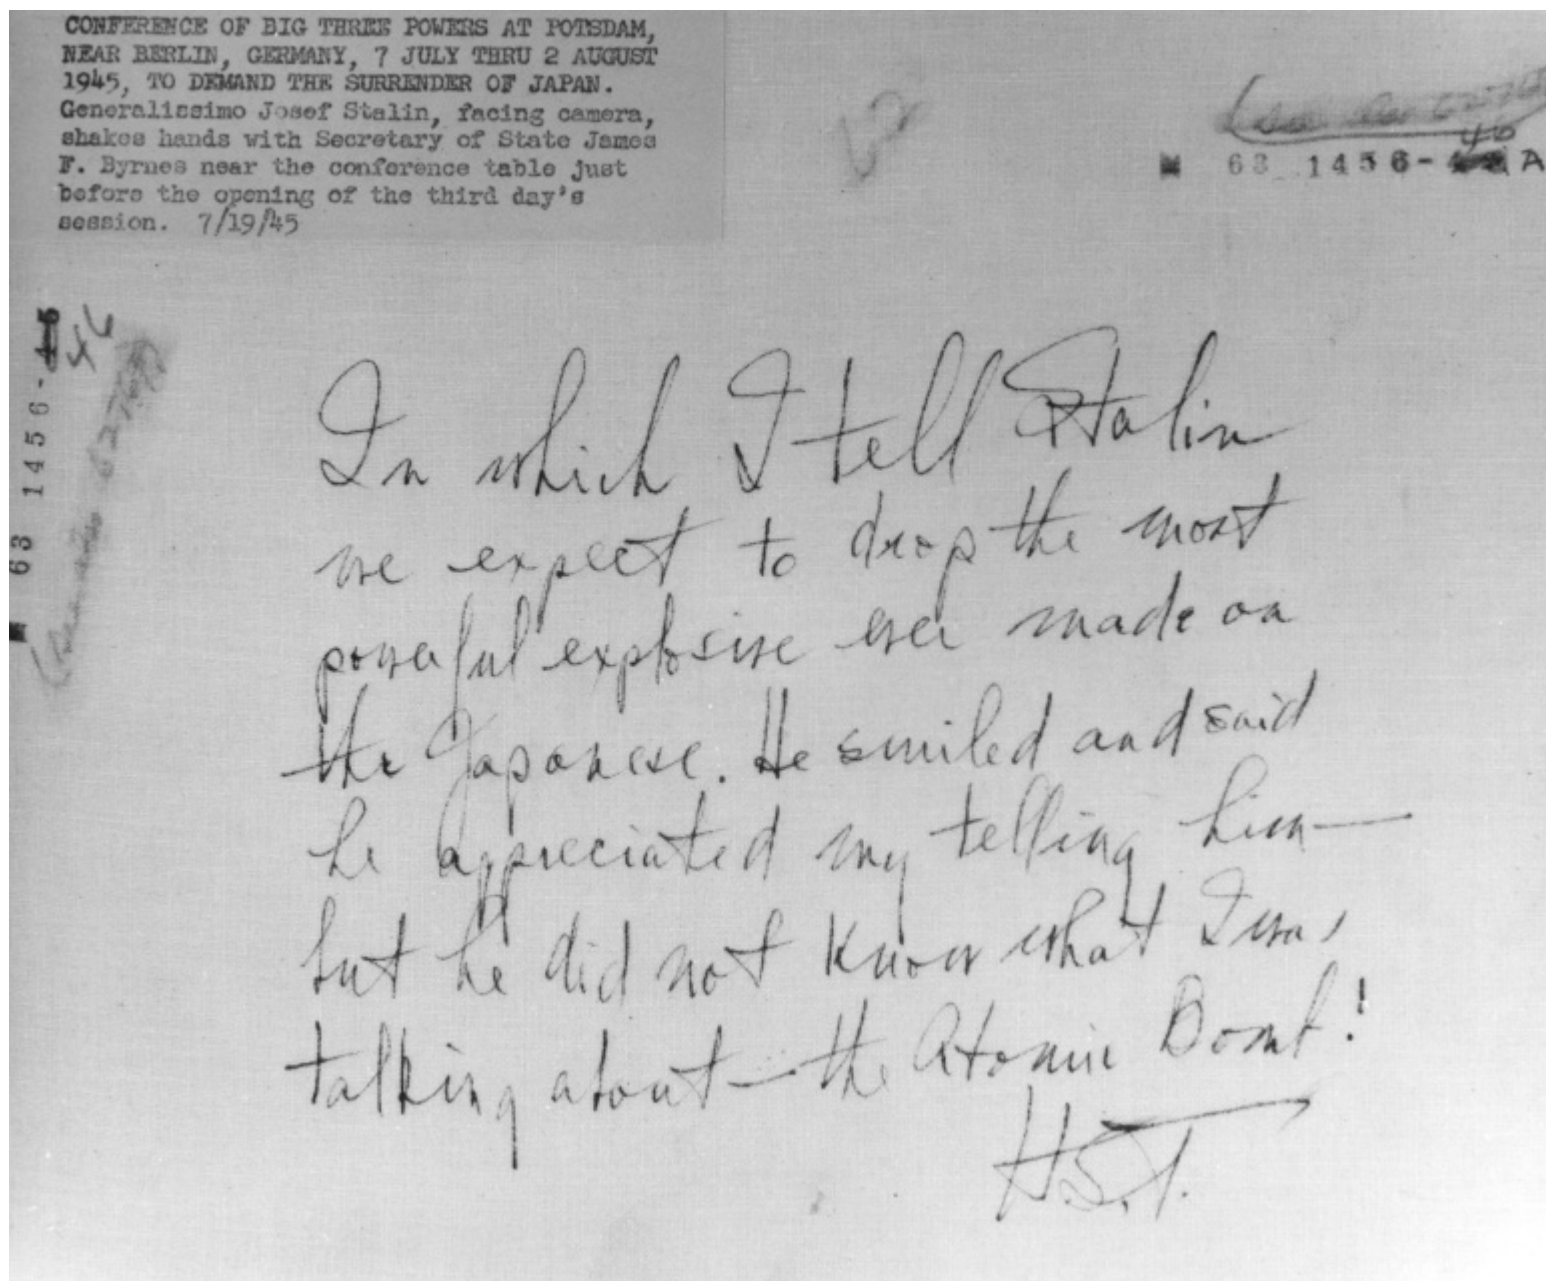 CONFERENCE OF BIG THREE POWERS AT POTSDAM,
NEAR BERLIN, GERMANY, 7 JULY THRU 2 AUGUST
1945, TO DEMAND THE SURRENDER OF JAPAN.
Generalissimo Josef Stalin, facing camera,
shakes hands with Secretary of State James
F. Byrnes near the conference table just
before the opening of the third day's
session. 7/19/45
46
63 1456- A
63 1456-
46
In which I tell Stalin
we expect to drop the most
powerful explosive ever made on
the Japanese. He smiled and said
he appreciated my telling him—
but he did not know what I was
talking about—the Atomic Bomb!
H.S.T.